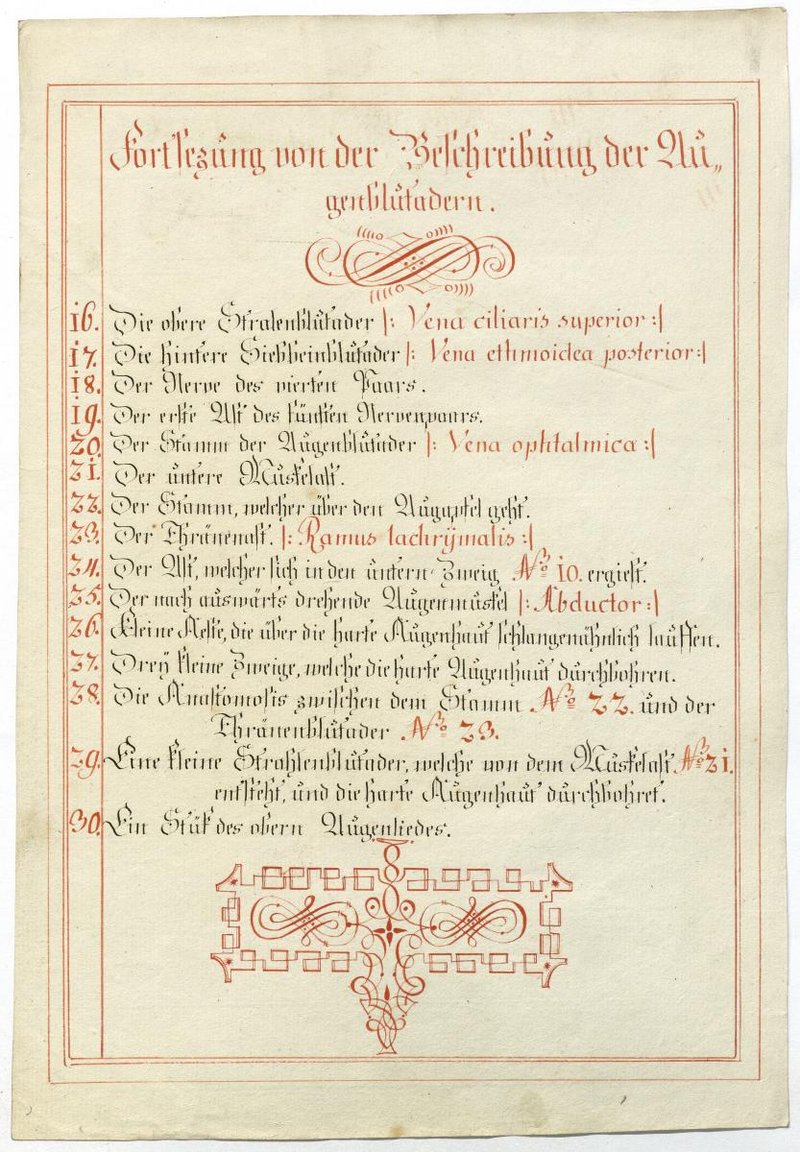 Fortsezung von der Beschreibung der Au„
genblutadern.
16. Die obere Stralenblutader |: Vena ciliaris superior :|
17. Die hintere Siebbeinblutader |: Vena ethmoidea posterior :|
18. Der Nerve des vierten Paars.
19. Der erste Ast des fünften Nervenpaars.
20. Der Stamm der Augenblutader |: Vena ophtalmica :|
21. Der untere Muskelast.
22. Der Stamm, welcher über den Augapfel geht.
23. Der Thränenast. |: Ramus lachrÿmalis :|
24. Der Ast, welcher sich in den untern Zweig No 10. ergiest.
25. Der nach auswärts drehende Augenmuskel |: Abductor :|
26. Kleine Aeste, die über die harte Augenhaut schlangenähnlich lauffen.
27. Dreÿ kleine Zweige, welche die harte Augenhaut durchbohren.
28. Die Anastomosis zwischen dem Stamm No 22. und der
Thränenblutader No 23.
29. Eine kleine Strahlenblutader, welche von dem Muskelast No 21.
entsteht, und die harte Augenhaut durchbohret.
30. Ein Stük des obern Augenliedes.